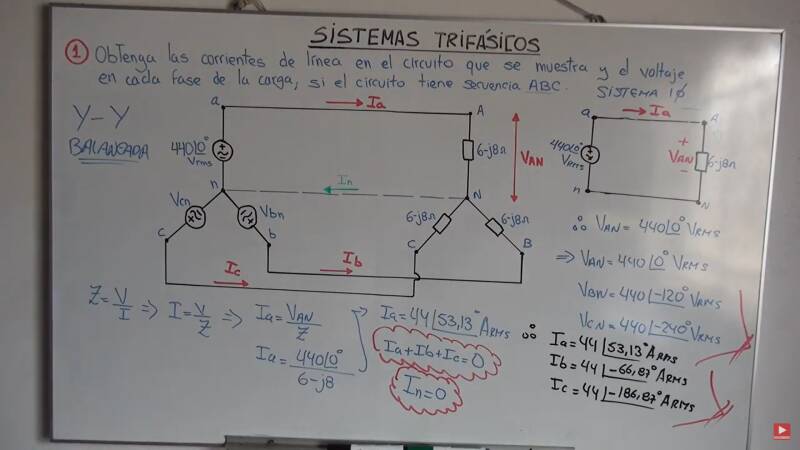 SISTEMAS TRIFÁSICOS
1 Obtenga las corrientes de línea en el circuito que se muestra y el voltaje
en cada fase de la carga, si el circuito tiene secuencia ABC.
SISTEMA 1Ø
Y-Y
BALANCEADA
a
Ia
A
440∠0°
Vrms
6-j8Ω
VAN
n
In
N
Vcn
Vbn
6-j8Ω
6-j8Ω
c
b
C
B
Ib
Ic
a
Ia
A
440∠0°
Vrms
+
VAN
-
6-j8Ω
n
N
∴ VAN = 440∠0° VRMS
⇒ VAN = 440∠0° VRMS
VBN = 440∠-120° VRMS
VCN = 440∠-240° VRMS
Z = V/I ⇒ I = V/Z ⇒ Ia = VAN/Z
Ia = 440∠0°/6-j8
Ia = 44∠53,13° ARMS
Ia+Ib+Ic=0
In=0
∴ Ia = 44∠53,13° ARMS
Ib = 44∠-66,87° ARMS
Ic = 44∠-186,87° ARMS